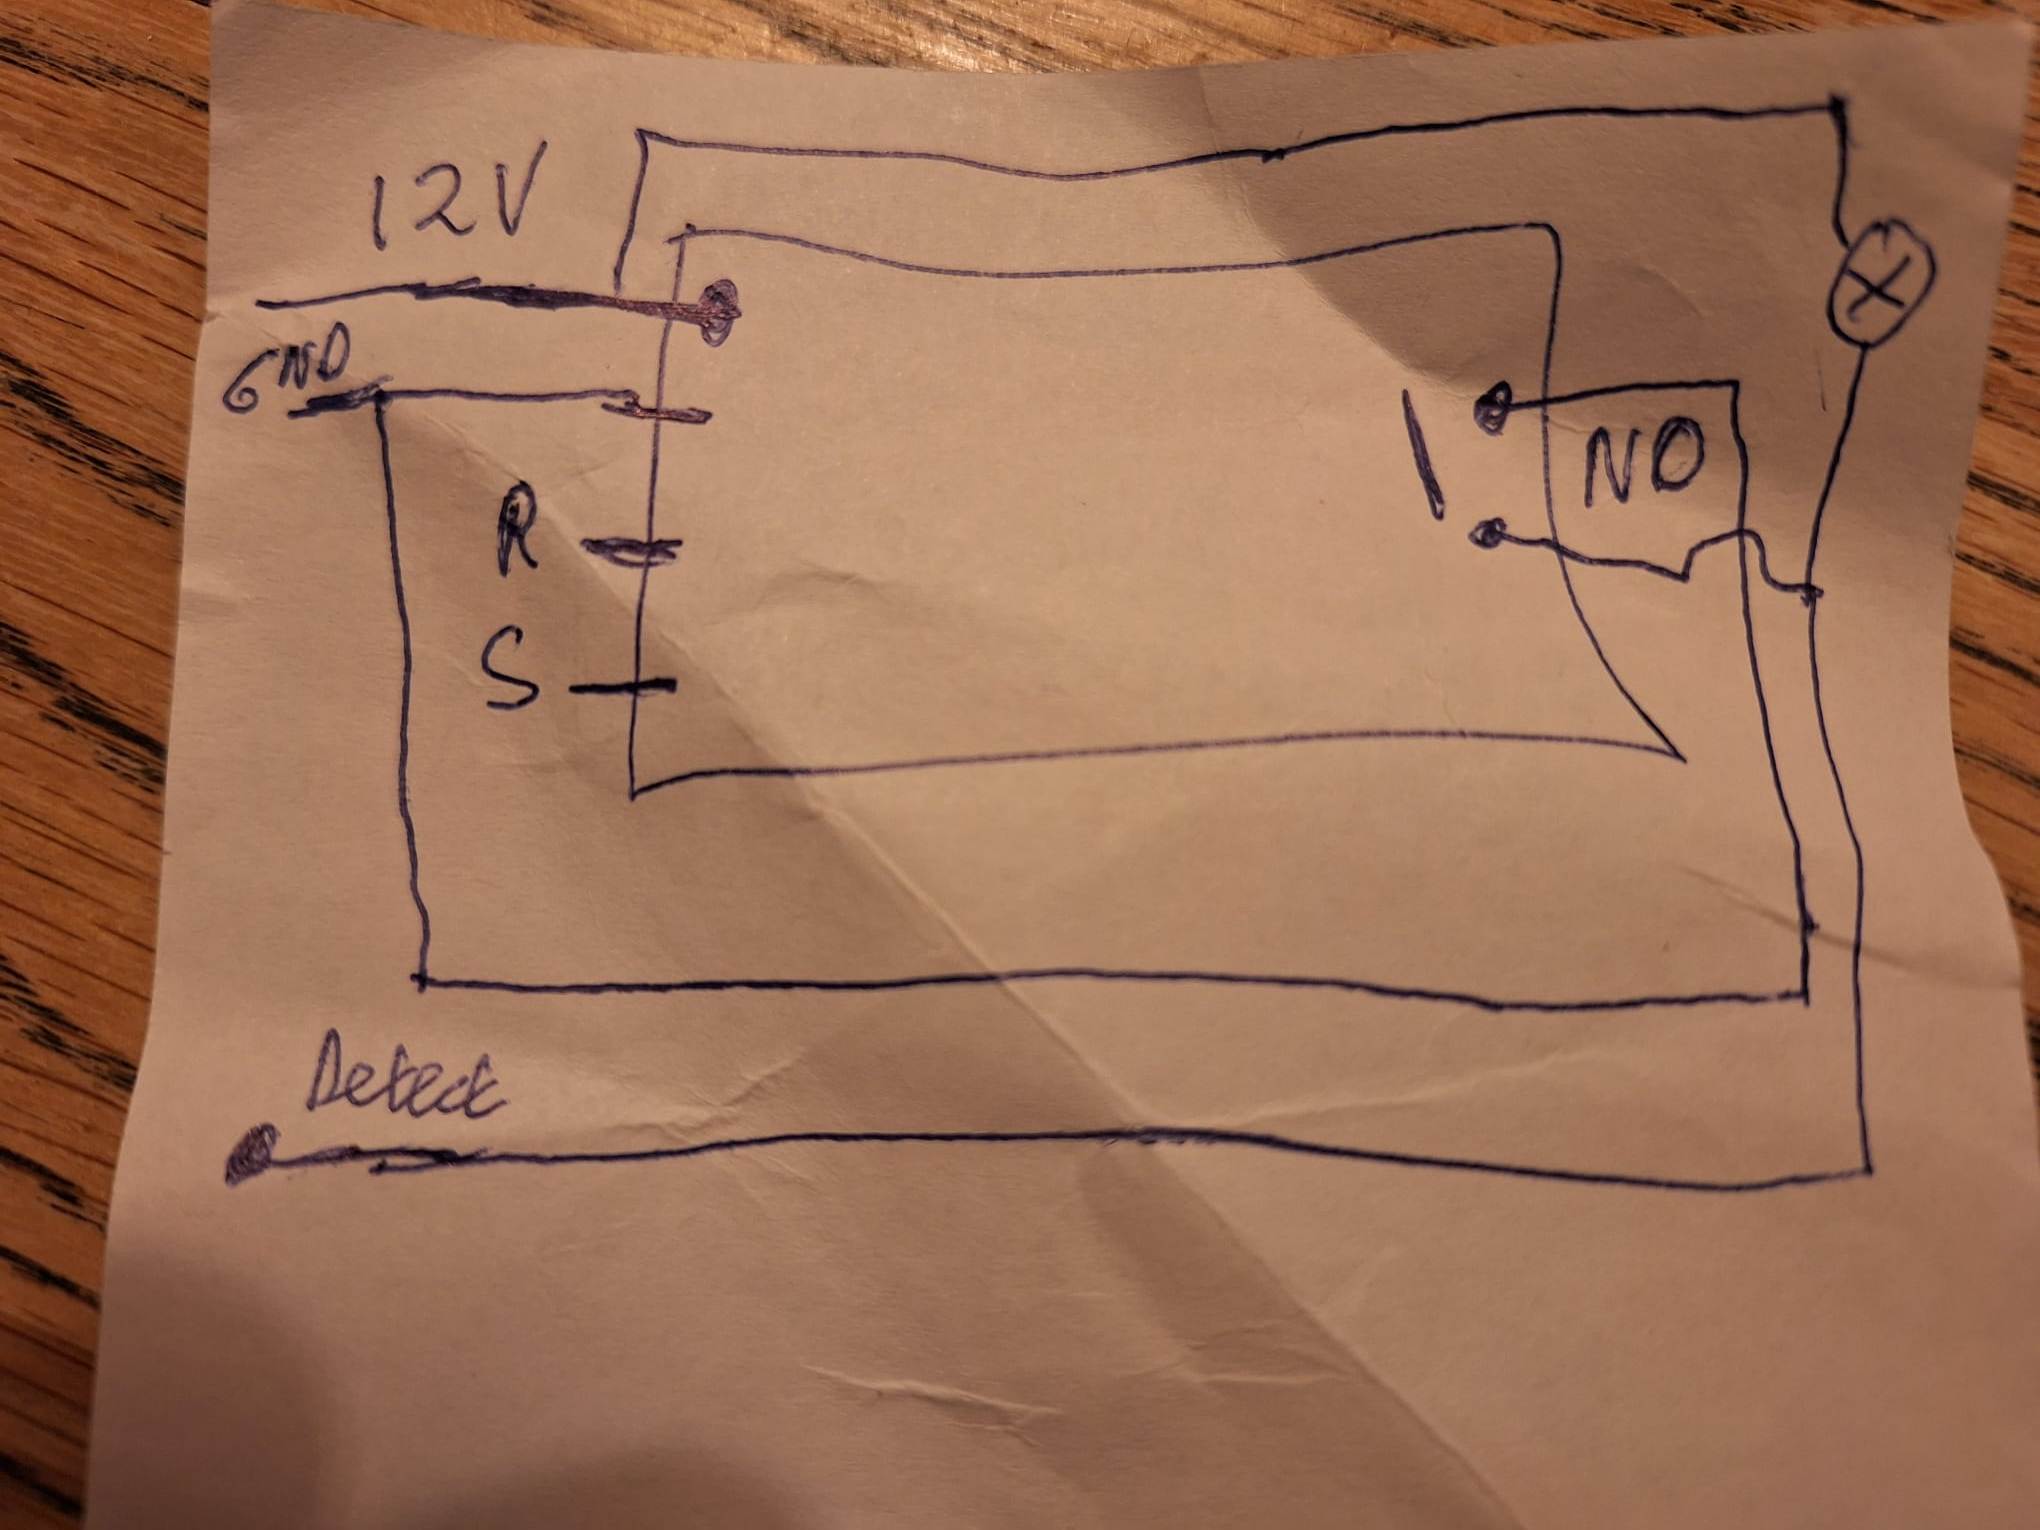 12V
GND
R
S
NO
Detect